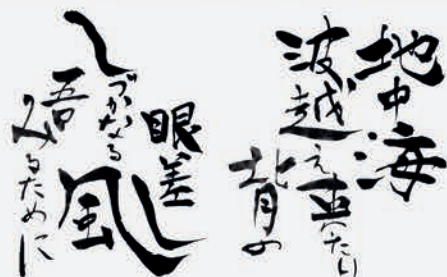 地中海
波越え来たり
背の
眼差し
しづかなる風
吾
みるために